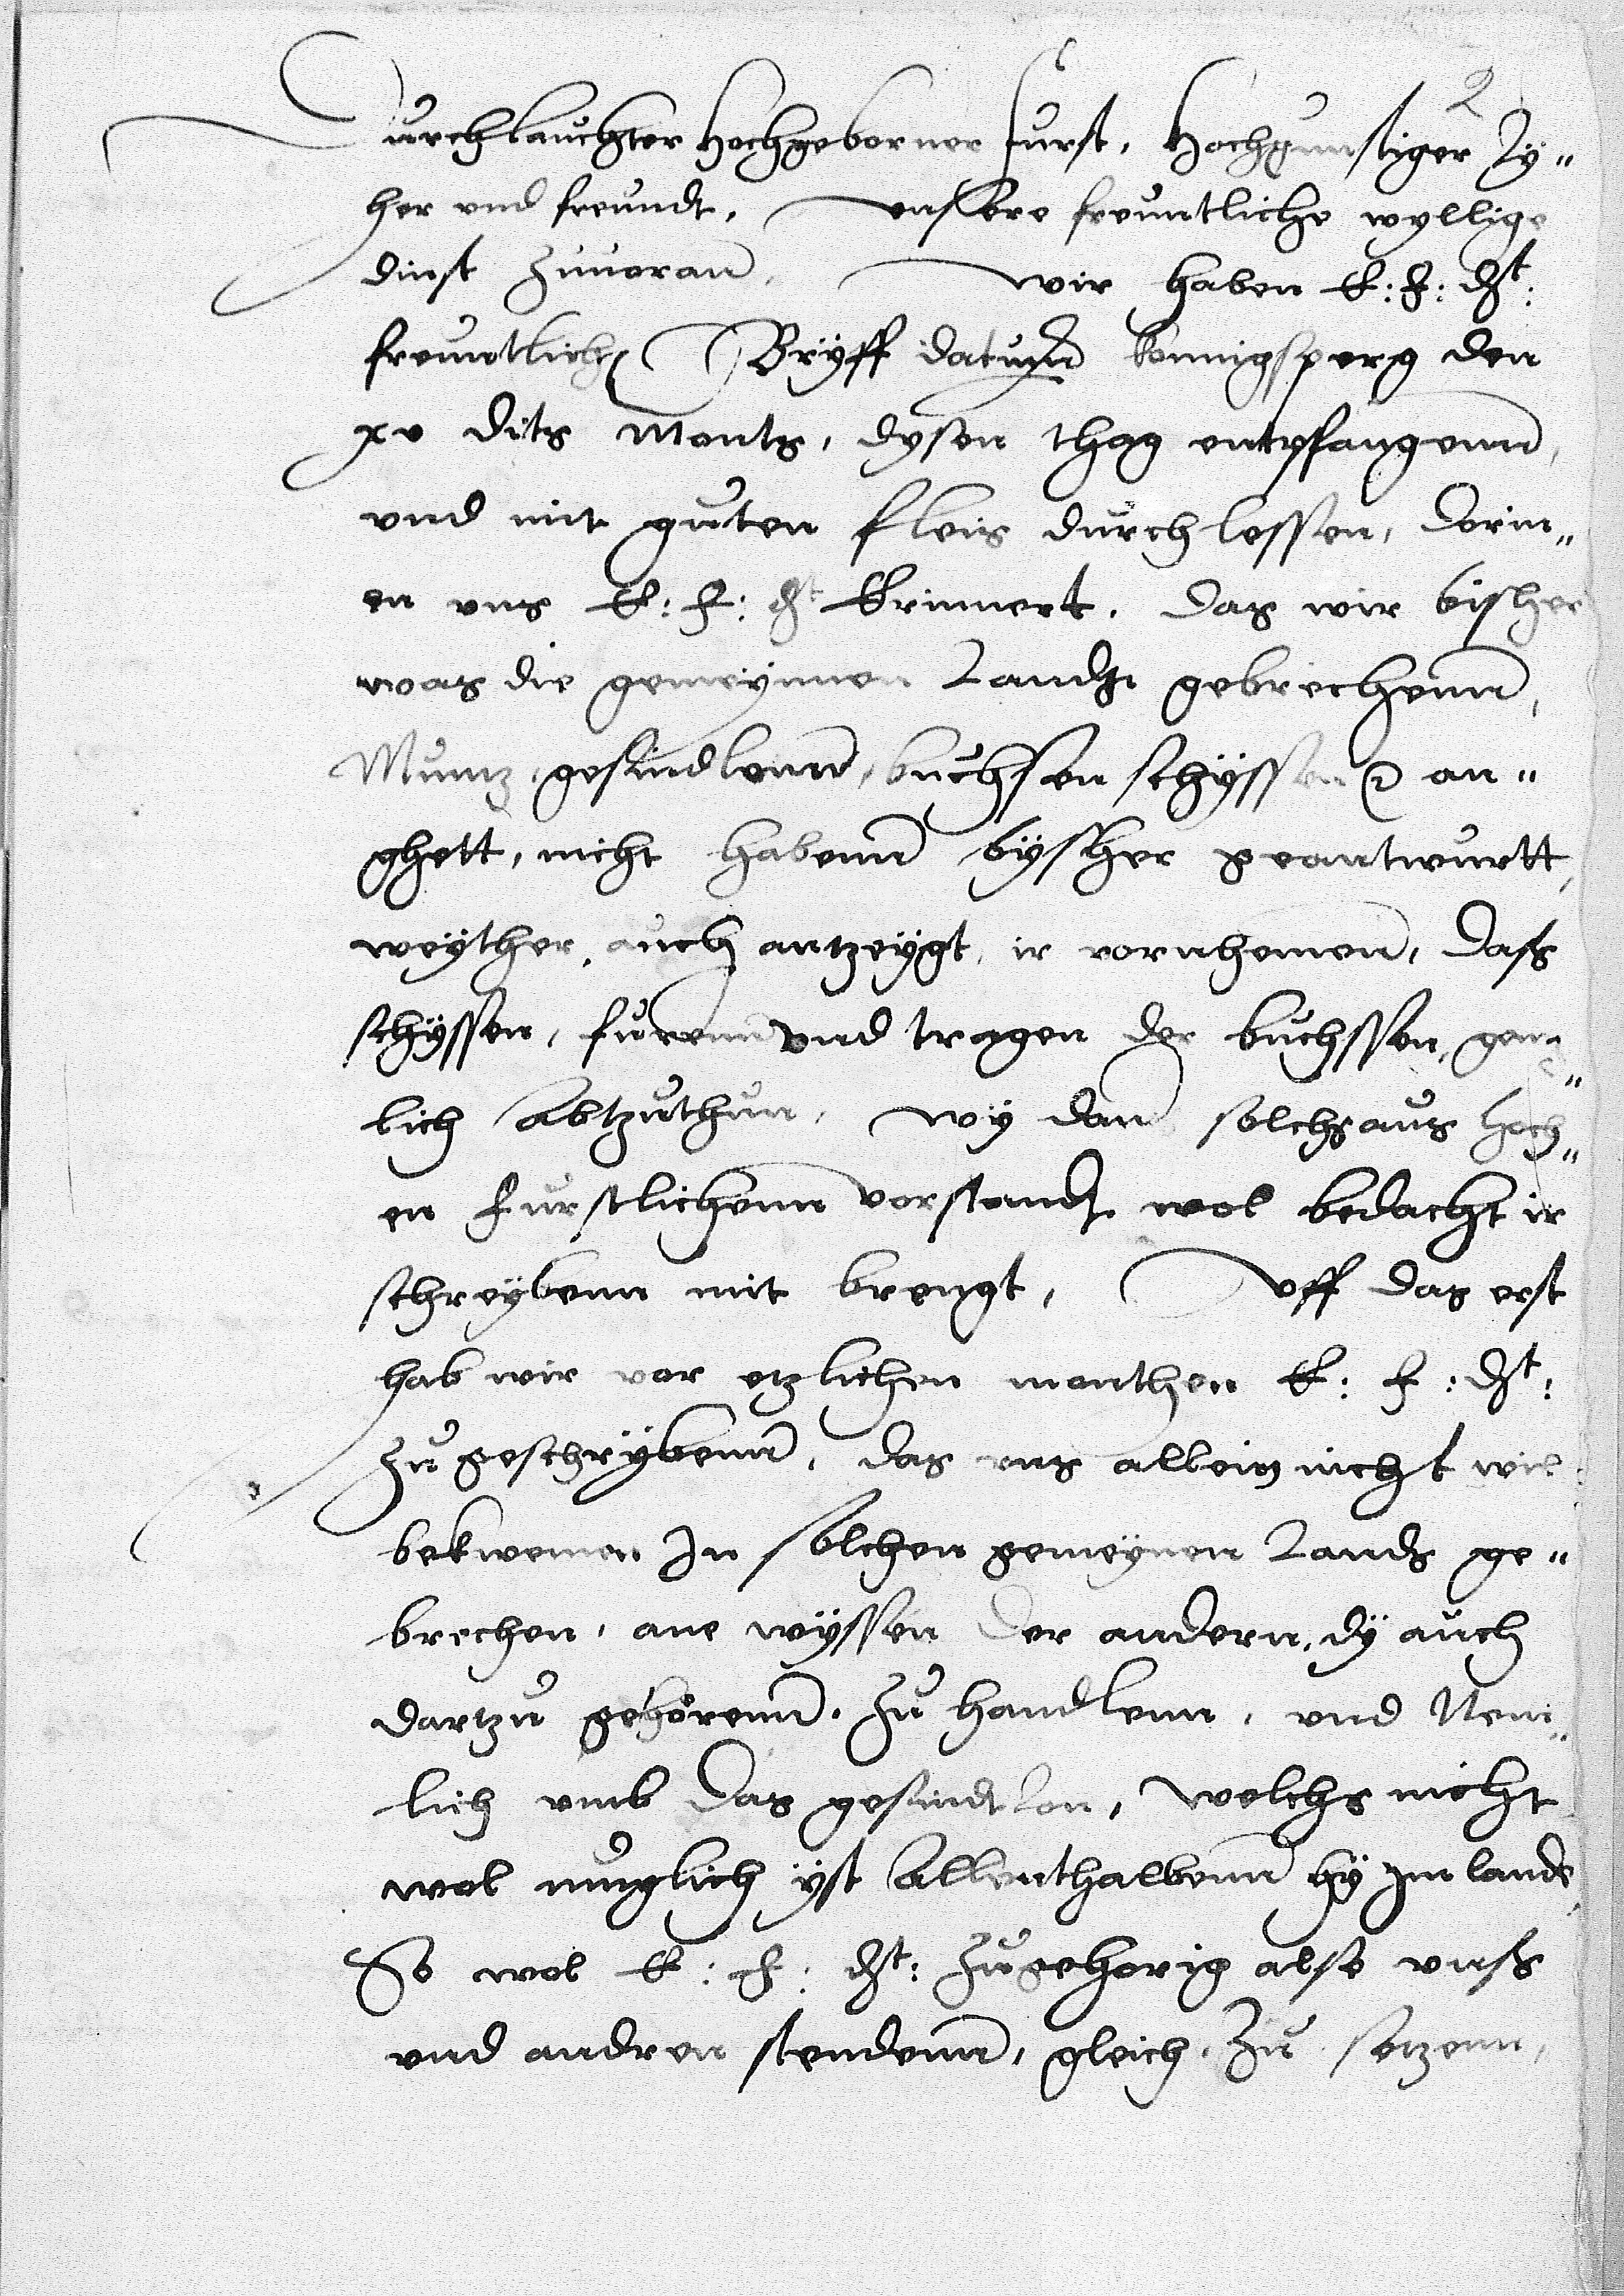 2
Durchlauchter Hochgeborner furst, Hochgunstiger Ly„
her vnd freundt, vnssere freuntliche wyllige
dinst zuuorann, wir haben E: F: dt:
freuntlich Bryff datumm konnigsperg den
xv dits Monts, dysen thag entpfangenn,
vnd mit guten fleis durch lessen, dorin„
en vns E: F: dt Erinnert, das wir bisher
was die gemeynnen Landes gebrechenn,
Muntz, gesindlonn, buchsen schyssen etc an„
ghett, nicht habenn byssher geantwurtt,
weyther auch antzeygt ir vornhemen, dass
schyssen, furenn vnd tragen der buchssen, gentz„
lich Abtzuthun, wy dan solchs aus hoch„
en furstlichenn vorstandt wol bedacht ir
schreybenn mit brengt, vff das erst
hab wir vor etzlichen monthen E: F: dt:
zugeschrybenn, das vns allein nicht wil
bekwemen In solchen gemeynen Lands ge„
brechen, ane wyssen der andern, dy auch
dartzu gehörenn, zu handlenn, vnd Nem„
lich vmb das gesindtlon, welchs nicht
wol muglich yst Allenthalbenn hy im lande
So wol E: F: dt: zugehorig also vnss
vnd andren stendenn, gleich zu setzenn,